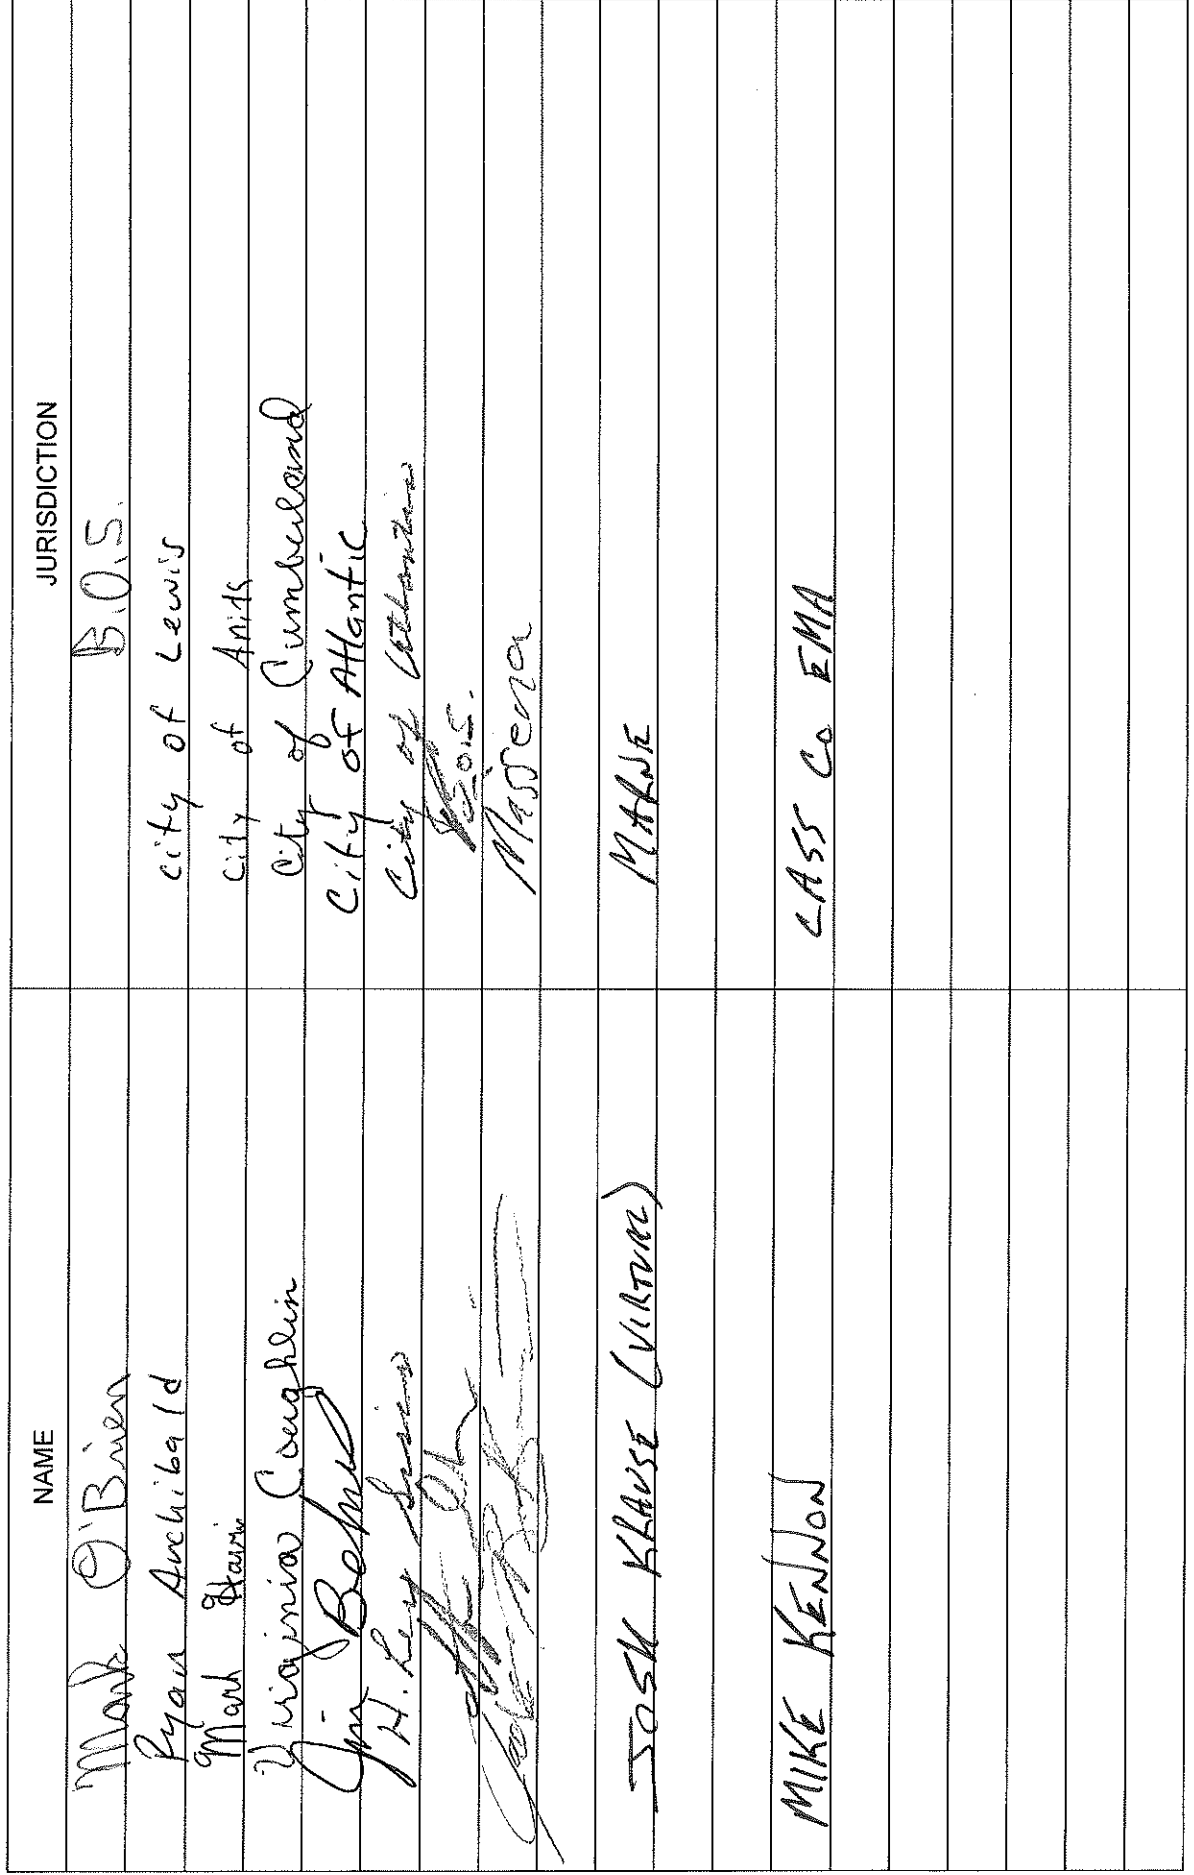 NAME JURISDICTION
Mark O'Brien B.O.S.
Ryan Archibald City of Lewis
Mark Harris City of Anita
Virginia Coughlin City of Cumberland
Jim Behu City of Atlantic
H. Lee City of Atlantic
B.O.S.
Massena
JOSH KRAUSE (VIRTURL) MARNE
MIKE KENNON CASS Co EMA